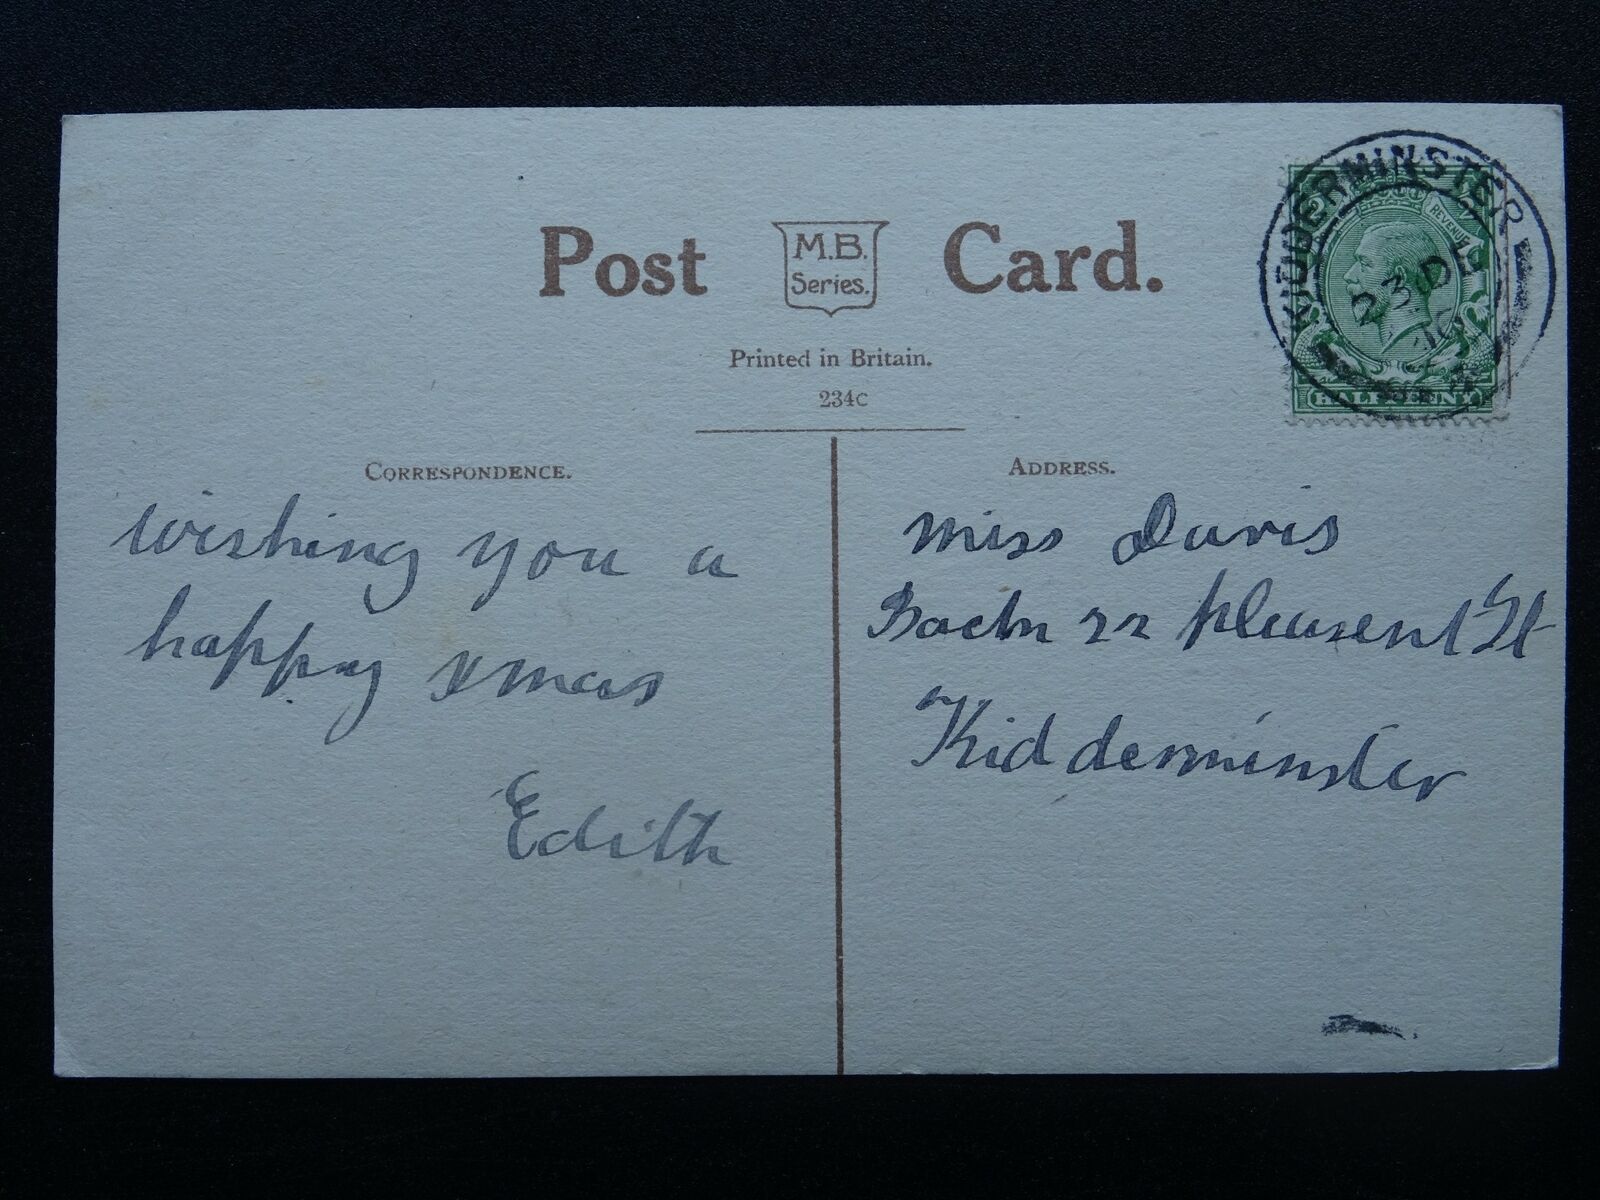 Post M.B. Series. Card.
Printed in Britain.
234C
KIDDERMINSTER
23 DE
REVENUE
HALFPENNY
CORRESPONDENCE.
wishing you a
happy xmas
Edith
ADDRESS.
Miss Davis
22 pleasent St
Kidderminster